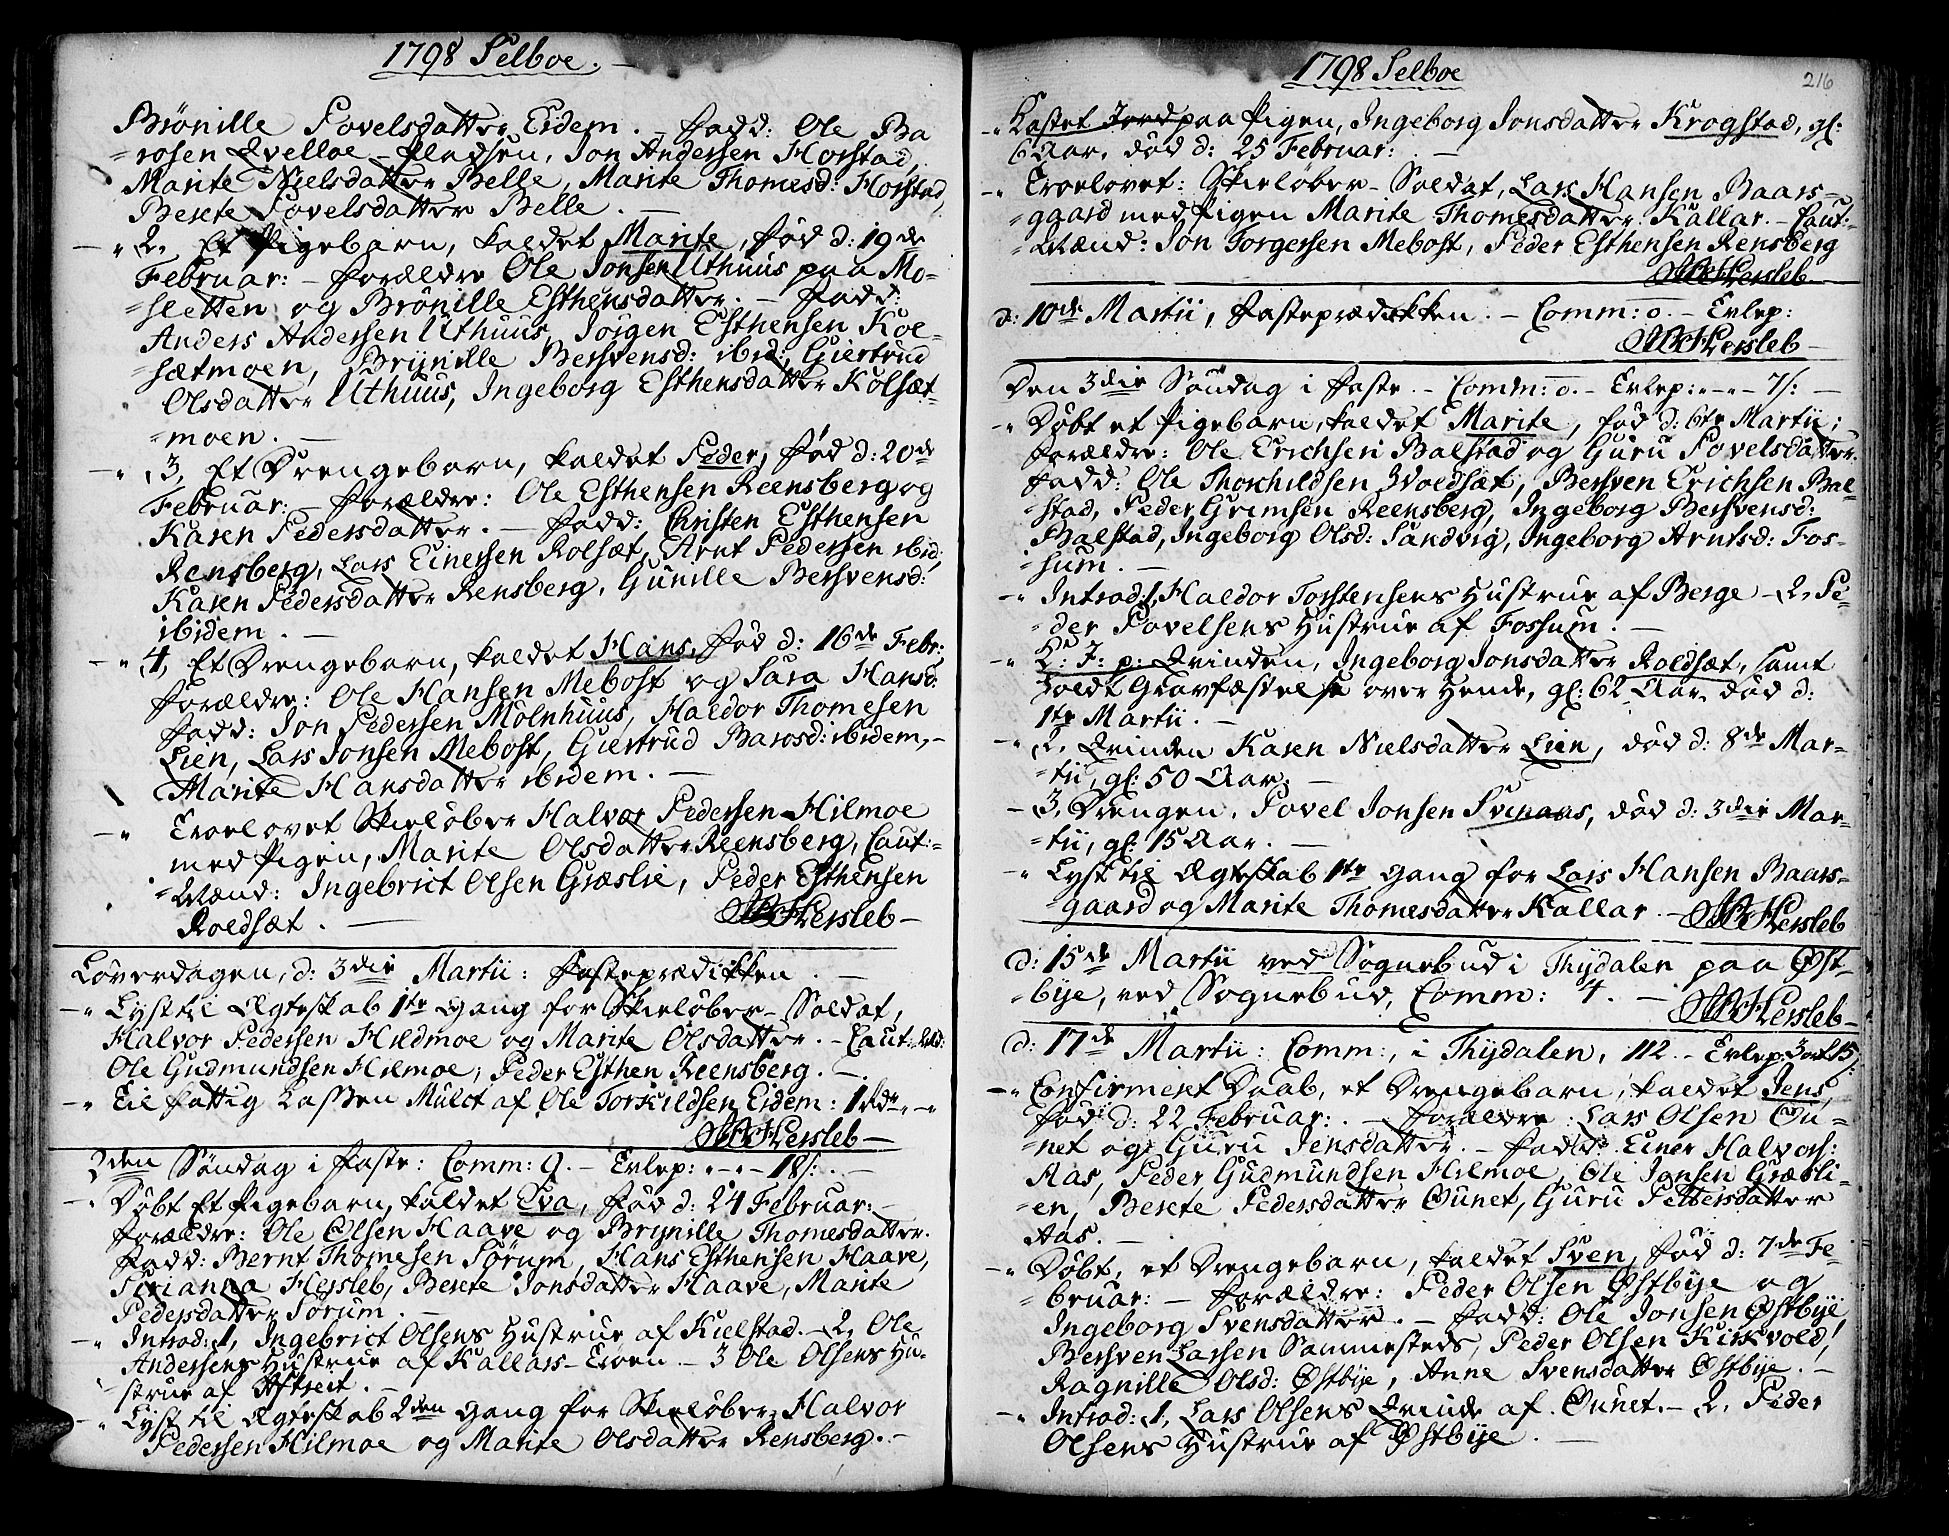 1798 Selboe.
Brönille Povelsdatter Eidem. – Fadd: Ole Ba
=rosen Qvelloe-Pladsen, Jon Andersen Horstad,
Marite Nielsdatter Belle, Marite Thomesd: Horstad,
Berete Povelsdatter Belle. –
– " 2, Et Pigebarn, kaldet Marite, fød d: 19de
Februar: – Forældre Ole Jonsen Uthuus paa Mo-
=sletten og Brönille Esthensdatter. – Fadd:
Anders Andersen Uthuus, Jörgen Esthensen Kol-
=sætmoen, Brynille Bersvensd: ibid:, Giertrud
Olsdatter Uthuus, Ingeborg Esthensdatter Kolsæt-
=moen. –
– " 3, Et Drengebarn, kaldet Peder, fød d: 20de
Februar: – Forældre: Ole Esthensen Reensberg og
Karen Pedersdatter. – Fadd: Christen Esthensen
Rensberg, Lars Einersen Rolsæt, Arnt Pedersen ibid;
Karen Pedersdatter Rensberg, Gunille Bersvensd:
ibidem. –
– " 4, Et Drengebarn, kaldet Hans, fød d: 16de Febr:
Forældre: Ole Hansen Mebost og Sara Hansd:
Fadd: Jon Pedersen Mölnhuus, Haldor Thomesen
Lien, Lars Jonsen Mebost, Giertrud Barosd: ibidem, –
Marite Hansdatter ibidem. –
– " Troelovet Skieløber Halvor Pedersen Hilmoe
med Pigen, Marite Olsdatter Reensberg, Caut:=
=Mænd: Ingebrict Olsen Græslie, Peder Esthensen
Roldsæt. – Hersleb –
Löverdagen, d: 3die Martii: Fasteprædikken. –
– " Lyst til Ægteskab 1te Gang for Skieløber-Soldat,
Halvor Pedersen Hildmoe og Marite Olsdatter. – Caut: Md:
Ole Gudmundsen Hilmoe, Peder Esthen Reensberg. –
– " Til fattig Cassen Mulct af Ole Torkildsen Eidem: 1 Rdr "-"
Hersleb –
2den Söndag i Faste: Comm: 9. – Exlep: "-"- 18/: –
– " Döbt Et Pigebarn, kaldet Eva, fød d: 24 Februar: –
Forældre: Ole Olsen Haave og Brynille Thomesdatter.
Fadd: Bernt Thomesen Sörum, Hans Esthensen Haave,
Sirianna Hersleb, Berete Jonsdatter Haave, Marite
Pedersdatter Sörum. –
– " Introd: 1, Ingebrict Olsens Hustrue af Kielstad. – 2, Ole
Andersens Hustrue af Kallars-Troen. – 3 Ole Olsens Hu-
=strue af Aftreit. –
– " Lyst til Ægteskab 2den Gang for Skieløber, Halvor
Pedersen Hilmoe og Marite Olsdatter Rensberg. –
1798 Selboe
216
– " Castet Jord paa Pigen, Ingeborg Jonsdatter Krogstad, gl:
6 Aar, død d: 25 Februar: –
– " Troelovet: Skieløber-Soldat, Lars Hansen Baars-
=gaard med Pigen Marite Thomesdatter Kallar. – Caut:-
=Mænd: Jon Torgersen Mebost, Peder Esthensen Rensberg
Hersleb –
d: 10de Martii, Fasteprædikken. – Comm: o. – Exlep:
Hersleb –
Den 3die Söndag i Faste. – Comm: o. – Exlep: "-"- 7/: –
– " Döbt et Pigebarn, kaldet Marite, fød d: 6te Martii;
Forældre: Ole Erichsen Balstad og Guru Povelsdatter.
Fadd: Ole Thorchildsen Voldsæt, Bersven Erichsen Bal-
=stad, Peder Grimsen Reensberg, Ingeborg Bersvensd:
Balstad, Ingeborg Olsd: Sandvig, Ingeborg Arntsd: Fos-
=sum. –
– " Introd: 1, Haldor Torstensens Hustrue af Berge – 2, Pe-
=der Povelsens Hustrue af Fossum. –
– " C: J: p: Qvinden, Ingeborg Jonsdatter Roldsæt, samt
holdt Gravfæstelse over Hende, gl: 62 Aar, død d:
1te Martii. –
– " 2, Qvinden Karen Nielsdatter Lien, død d: 8de Mar-
=tii, gl: 50 Aar. –
– 3, Drengen, Povel Jonsen Svinaas, død d: 3die Mar-
=tii, gl: 15 Aar. –
– " Lyst til Ægteskab 1te Gang for Lars Hansen Baars-
=gaard og Marite Thomesdatter Kallar. – Hersleb
d: 15de Martii ved Sognebud i Thydalen paa Øst-
=bye, ved Sognebud, Comm: 4. – Hersleb –
d: 17de Martii: Comm:, i Thydalen, 112. – Exlep: 3 ort 15/:
– " Confirmeret Daab, et Drengebarn, kaldet Jens,
fød d: 22 Februar: – Forældre: Lars Olsen Ou-
=net og Guru Jensdatter. – Fadd: Einer Halvors:
Aas, Peder Gudmundsen Hilmoe, Ole Jonsen Græsli-
=en, Berete Pedersdatter Ounet, Guru Pettersdatter
Aas. –
– " Döbt, et Drengebarn, kaldet Sven, fød d: 7de Fe-
bruar: – Forældre: Peder Olsen Østbye og
Ingeborg Svensdatter. – Fadd: Ole Jonsen Østbye,
Bersven Larsen Sammesteds, Peder Olsen Kirkvold,
Ragnille Olsd: Østbye, Anne Svensdatter Østbye. –
– " Introd: 1, Lars Olsens Qvinde af Ounet. – 2, Peder
Olsens Hustrue af Østbye. –